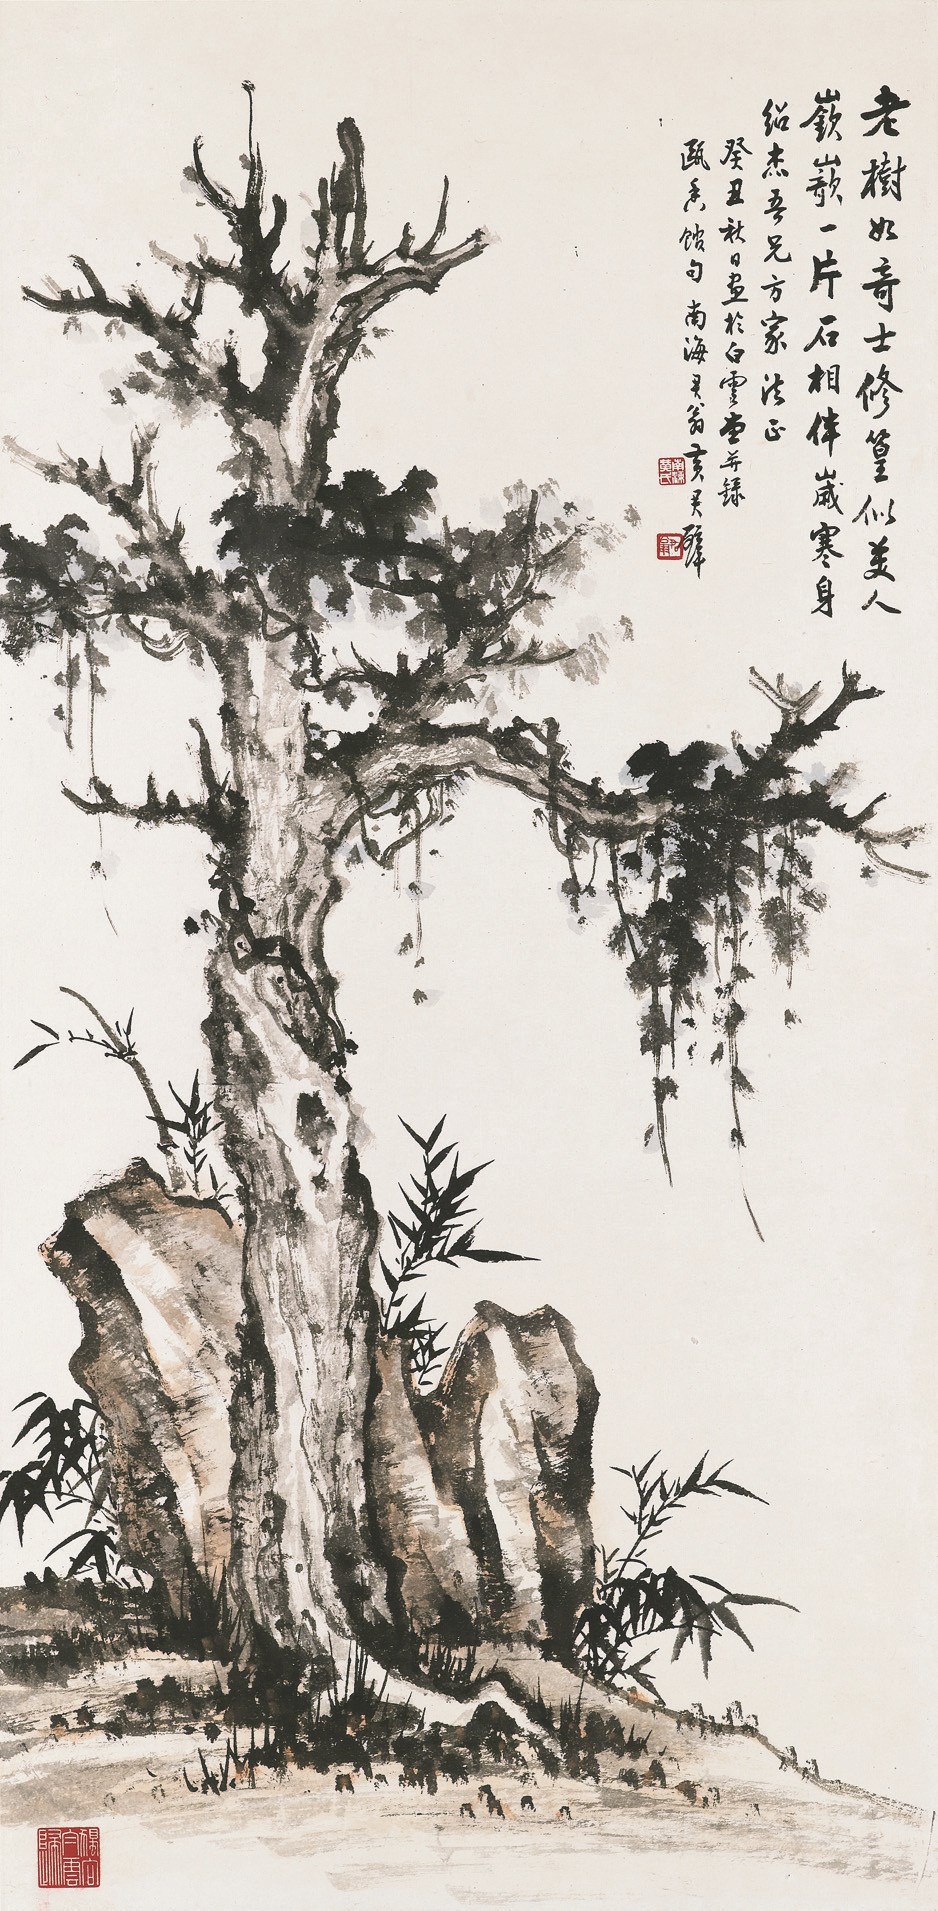 老樹如奇士修篁似美人
嶔嶔一片石相伴歲寒身
紹杰吾兄方家法正
癸丑秋日畫於白雲堂并錄
甌香館句 南海君翁黃君璧